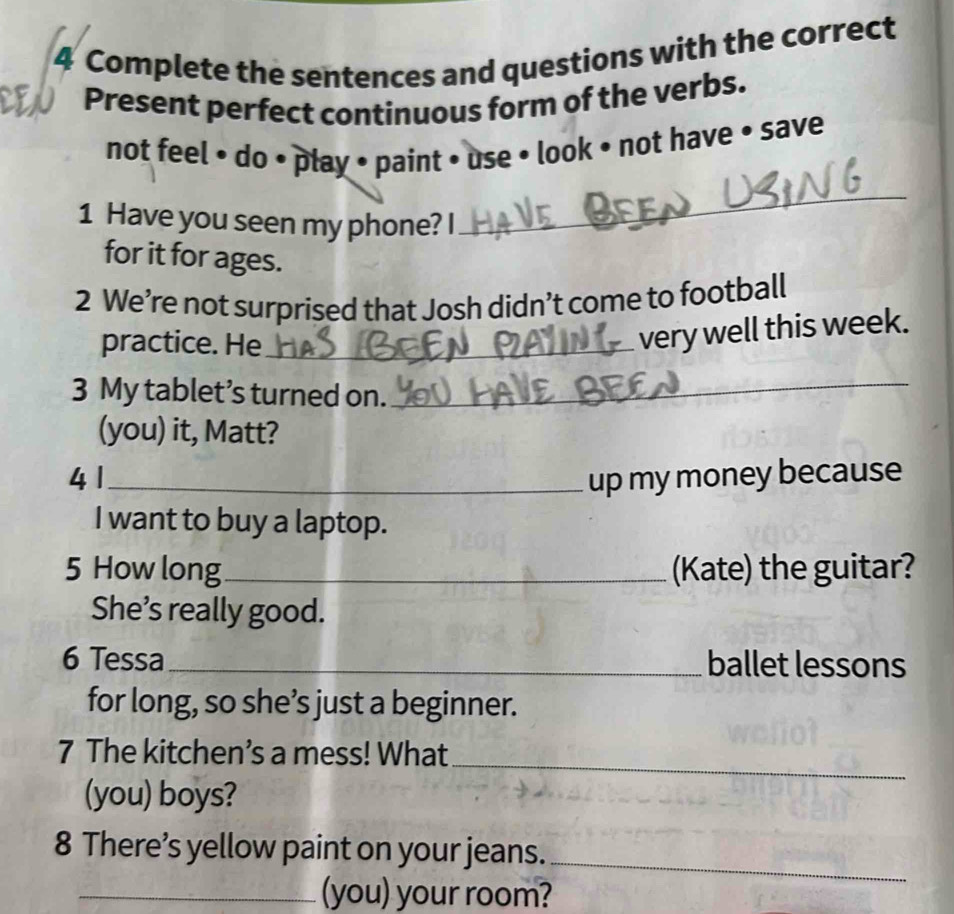 4 Complete the sentences and questions with the correct
EEN Present perfect continuous form of the verbs.
not feel • do • play • paint • use • look • not have • save
1 Have you seen my phone? I HAVE BEEN USING
for it for ages.
2 We're not surprised that Josh didn't come to football
practice. He HAS BEEN PLAYING very well this week.
3 My tablet's turned on. YOU HAVE BEEN
(you) it, Matt?
4 I up my money because
I want to buy a laptop.
5 How long (Kate) the guitar?
She's really good.
6 Tessa ballet lessons
for long, so she's just a beginner.
7 The kitchen's a mess! What
(you) boys?
8 There's yellow paint on your jeans.
(you) your room?